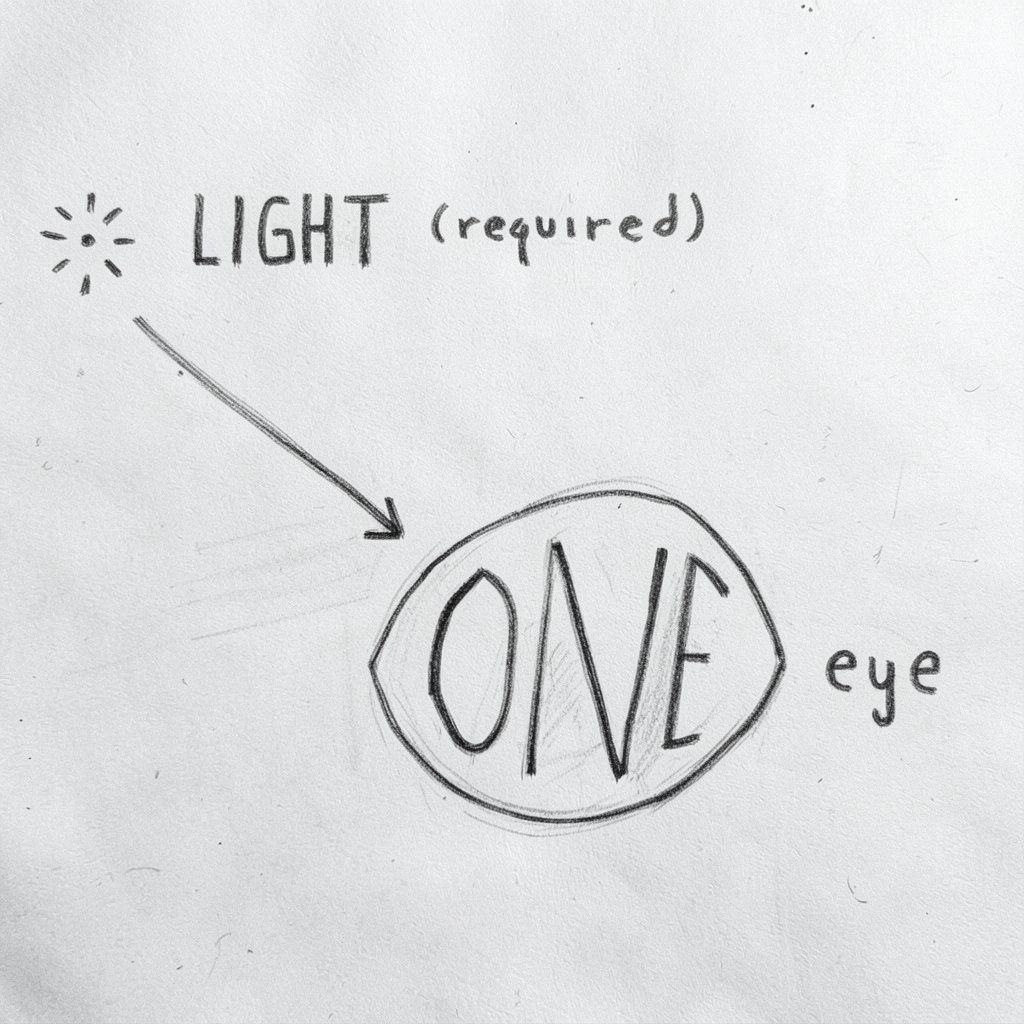 LIGHT (required)
ONE eye